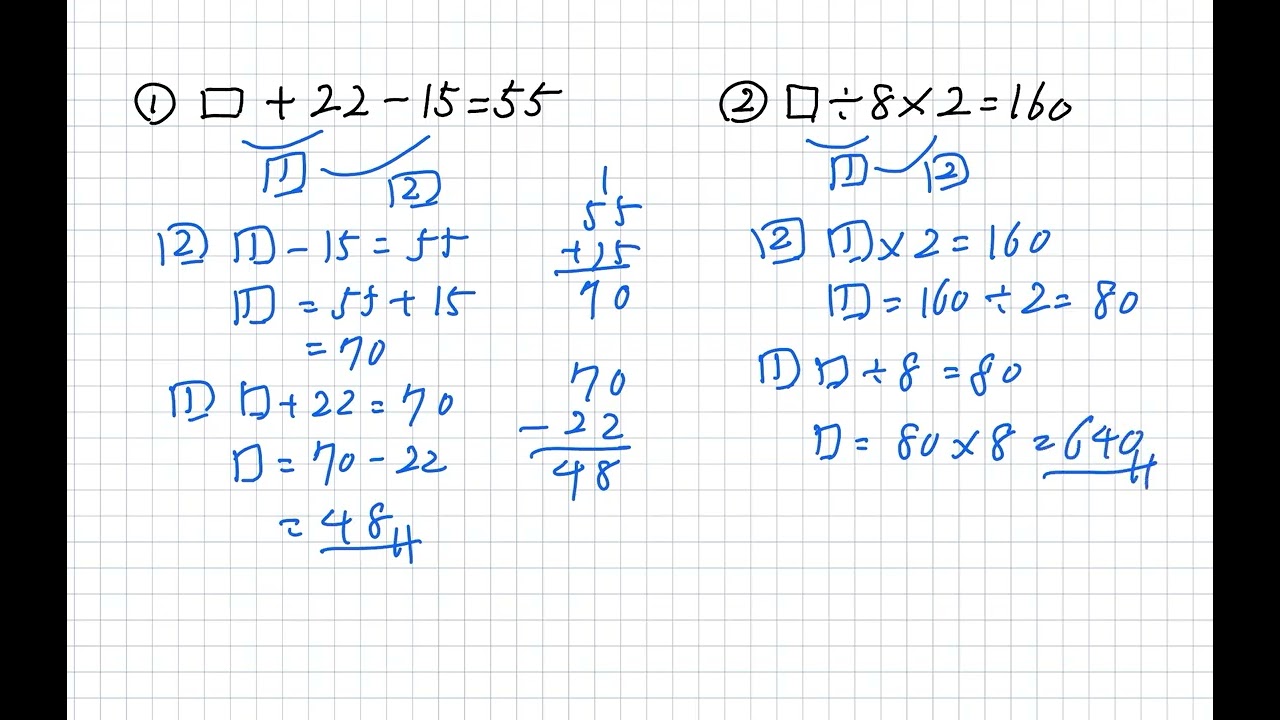 ① □ + 22 - 15 = 55
1
2
2 1 - 15 = 55
1 = 55 + 15
= 70
1 □ + 22 = 70
□ = 70 - 22
= 48
1
55
+15
70
70
- 22
48
② □ ÷ 8 × 2 = 160
1 2
2 1 × 2 = 160
1 = 160 ÷ 2 = 80
1 □ ÷ 8 = 80
□ = 80 × 8 = 640